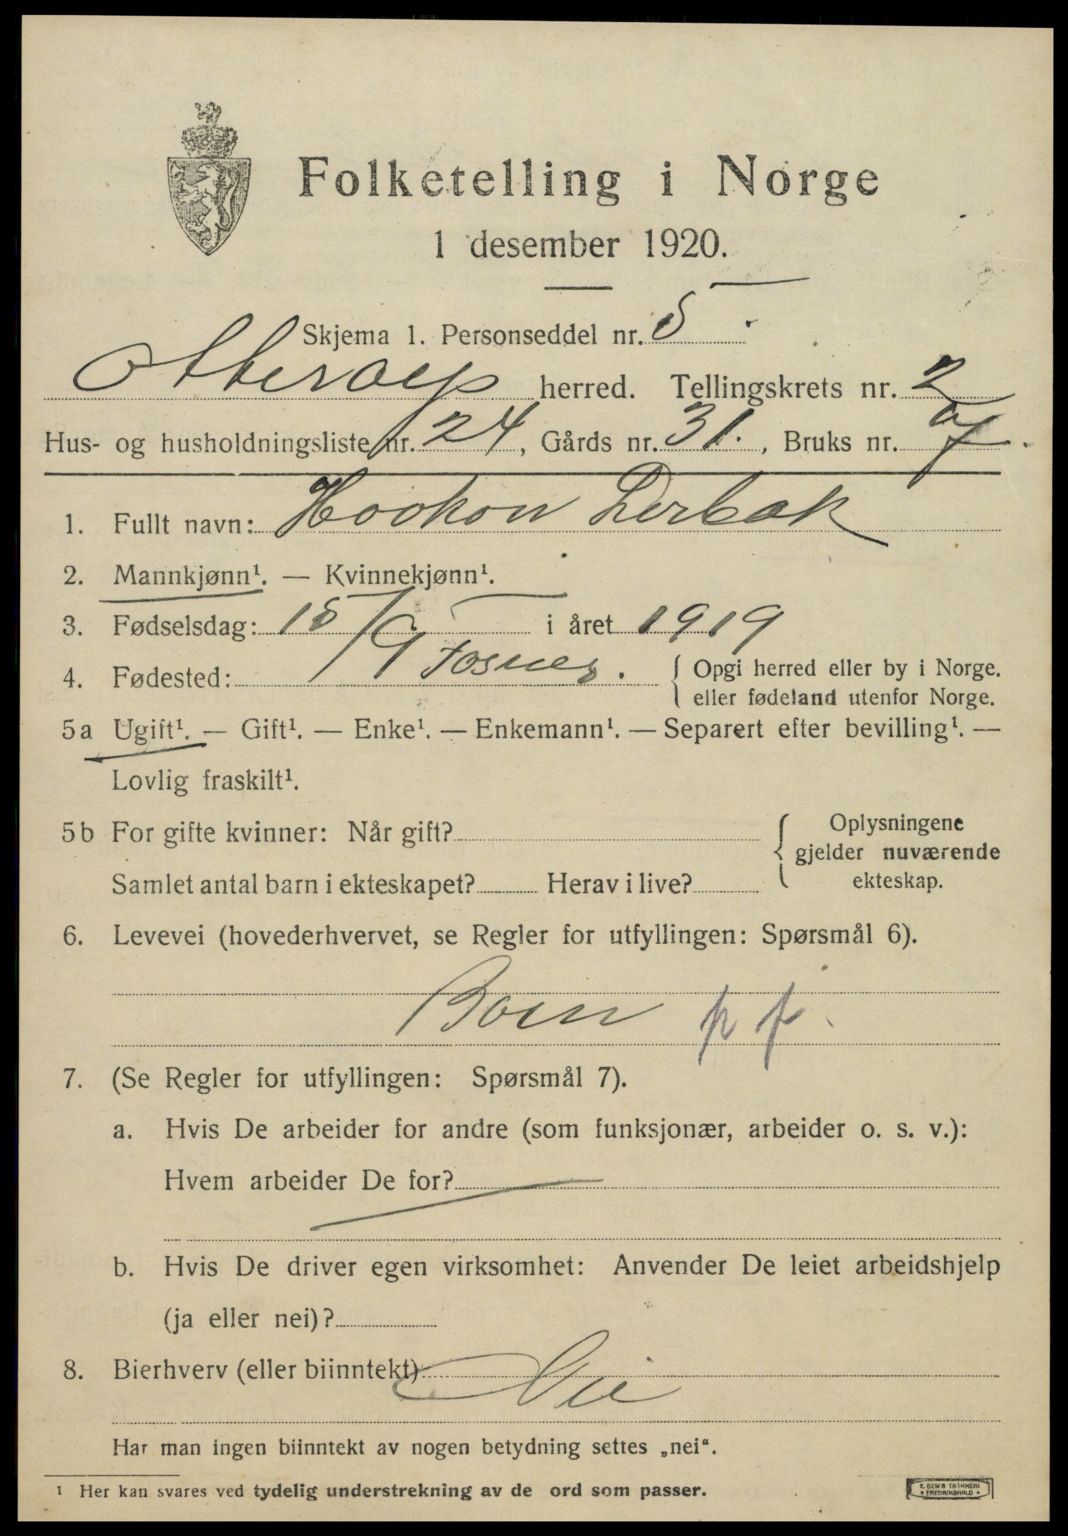 Folketelling i Norge
1 desember 1920.
Skjema 1. Personseddel nr. 5.
Otterøy herred. Tellingskrets nr. 2
Hus- og husholdningsliste nr. 24, Gårds nr. 31., Bruks nr. 7.
1. Fullt navn: Hookon Derbak
2. Mannkjønn¹. — Kvinnekjønn¹.
3. Fødselsdag: 15/9 i året 1919
4. Fødested: Fosnes. { Opgi herred eller by i Norge.
eller fødeland utenfor Norge.
5a Ugift¹. — Gift¹. — Enke¹. — Enkemann¹. — Separert efter bevilling¹. —
Lovlig fraskilt¹.
5b For gifte kvinner: Når gift? { Oplysningene
gjelder nuværende
Samlet antal barn i ekteskapet? Herav i live? ekteskap.
6. Levevei (hovederhvervet, se Regler for utfyllingen: Spørsmål 6).
Born p f.
7. (Se Regler for utfyllingen: Spørsmål 7).
a. Hvis De arbeider for andre (som funksjonær, arbeider o. s. v.):
Hvem arbeider De for?
b. Hvis De driver egen virksomhet: Anvender De leiet arbeidshjelp
(ja eller nei)?
8. Bierhverv (eller biinntekt) Nei
Har man ingen biinntekt av nogen betydning settes „nei“.
¹ Her kan svares ved tydelig understrekning av de ord som passer.